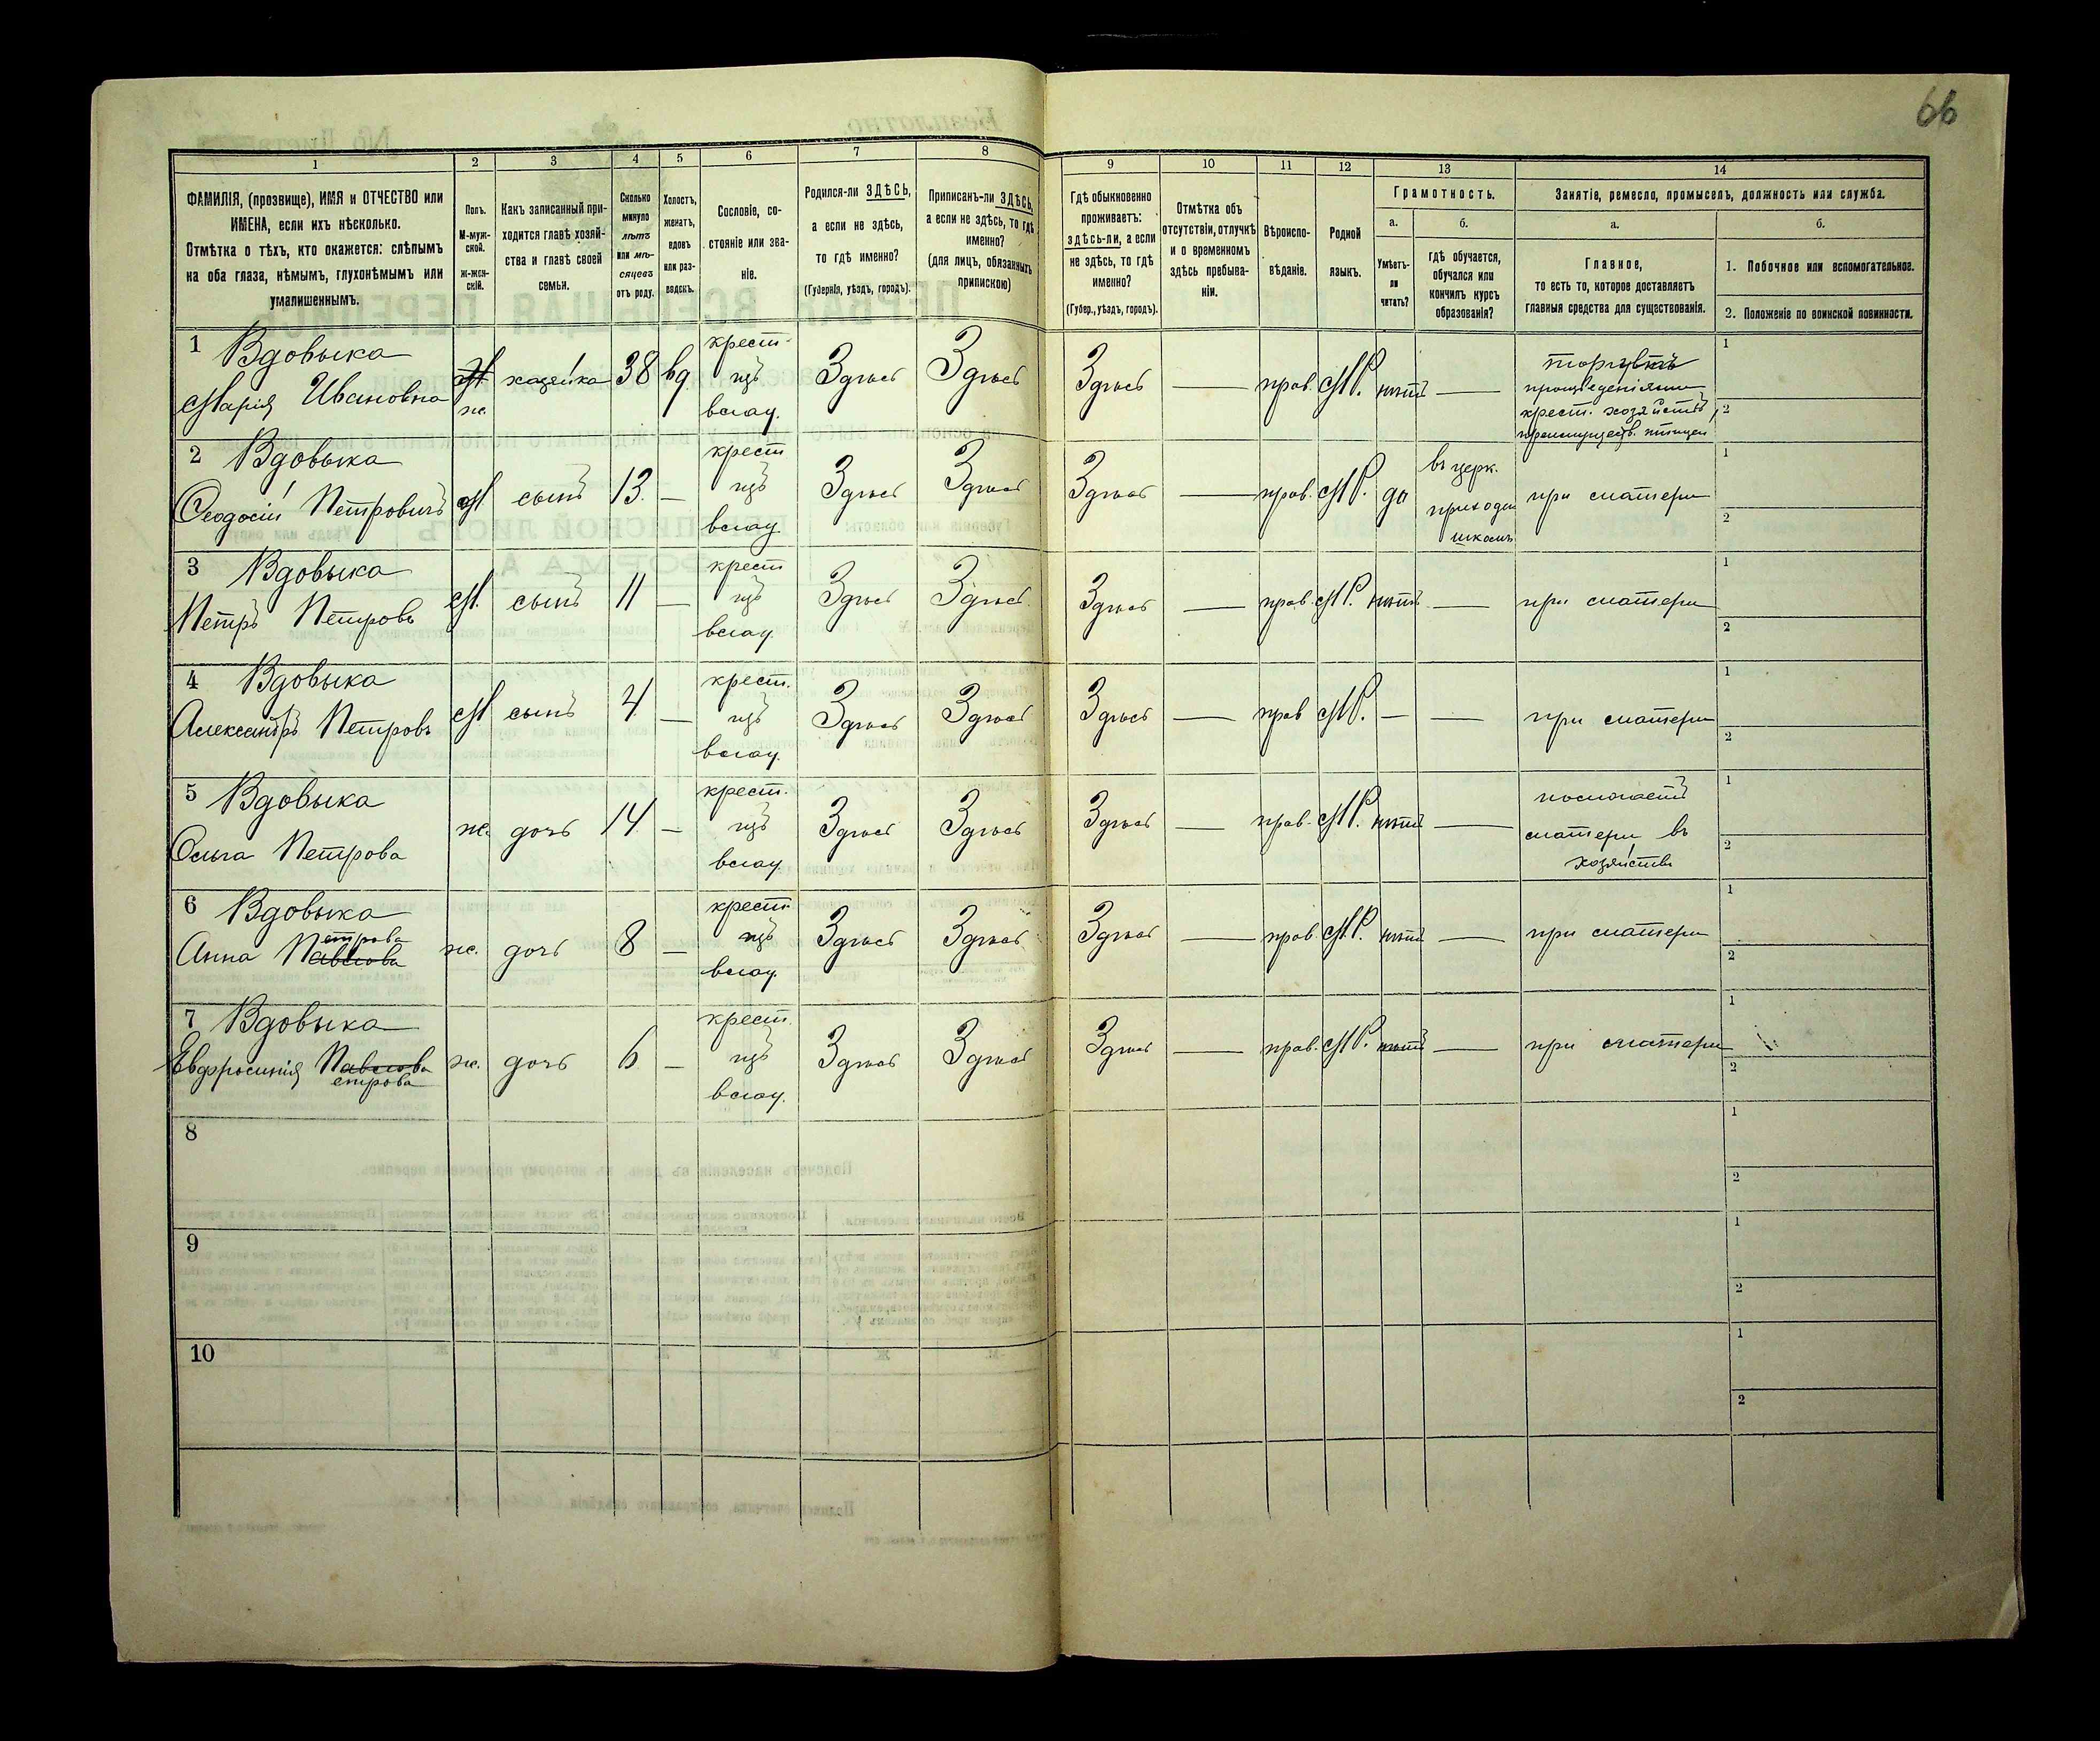 66
1 2 3 4 5 6 7 8 9 10 11 12 13 14
ФАМИЛІЯ, (прозвище), ИМЯ и ОТЧЕСТВО или
ИМЕНА, если ихъ нѣсколько.
Отмѣтка о тѣхъ, кто окажется: слѣпымъ
на оба глаза, нѣмымъ, глухонѣмымъ или
умалишеннымъ.
Полъ.
М-муж-
ской.
ж-жен-
скій.
Какъ записанный при-
ходится главѣ хозяй-
ства и главѣ своей
семьи.
Сколько
минуло
лѣтъ
или мѣ-
сяцевъ
отъ роду.
Холостъ,
женатъ,
вдовъ
или раз-
веденъ.
Сословіе, со-
стояніе или зва-
ніе.
Родился-ли ЗДѢСЬ,
а если не здѣсь,
то гдѣ именно?
(Губернія, уѣздъ, городъ).
Приписанъ-ли ЗДѢСЬ,
а если не здѣсь, то гдѣ
именно?
(для лицъ, обязанныхъ
припискою)
Гдѣ обыкновенно
проживаетъ:
здѣсь-ли, а если
не здѣсь, то гдѣ
именно?
(Губер., уѣздъ, городъ).
Отмѣтка объ
отсутствіи, отлучкѣ
и о временномъ
здѣсь пребыва-
ніи.
Вѣроиспо-
вѣданіе.
Родной
языкъ.
Грамотность.
а.
Умѣетъ-
ли
читать?
б.
гдѣ обучается,
обучался или
кончилъ курсъ
образованія?
Занятіе, ремесло, промыселъ, должность или служба.
а.
Главное,
то есть то, которое доставляетъ
главныя средства для существованія.
б.
1. Побочное или вспомогательное.
2. Положеніе по воинской повинности.
1 Вдовыка
Марія Ивановна
ж.
хозяйка
38
вд.
крест.
изъ
влад.
Здѣсь
Здѣсь
Здѣсь
—
прав.
М.Р.
нѣтъ
—
торгуетъ
произведеніями
крест. хозяйства,
преимуществ. птицей
1
2
2 Вдовыка
Ѳеодосій Петровичъ
М
сынъ
13.
—
крест
изъ
влад.
Здѣсь
Здѣсь
Здѣсь
—
прав.
М.Р.
да
въ церк.
приходск
школѣ
при матери
1
2
3 Вдовыка
Петръ Петровъ
М.
сынъ
11
—
крест
изъ
влад.
Здѣсь
Здѣсь
Здѣсь
—
прав.
М.Р.
нѣтъ
—
при матери
1
2
4 Вдовыка
Александръ Петровъ
М
сынъ
4.
—
крест.
изъ
влад.
Здѣсь
Здѣсь
Здѣсь
—
прав
М.Р.
—
—
при матери
1
2
5 Вдовыка
Ольга Петрова
ж.
дочь
14.
—
крест.
изъ
влад.
Здѣсь
Здѣсь
Здѣсь
—
прав.
М.Р.
нѣтъ
—
помогаетъ
матери въ
хозяйствѣ
1
2
6 Вдовыка
етрова
Анна Павлова
ж.
дочь
8
—
крест.
изъ
влад.
Здѣсь
Здѣсь
Здѣсь
—
прав.
М.Р.
нѣтъ
—
при матери
1
2
7 Вдовыка
Евфросинія Павлова
етрова
ж.
дочь
6
—
крест.
изъ
влад.
Здѣсь
Здѣсь
Здѣсь
—
прав.
М.Р.
нѣтъ
—
при матери
1
2
8
1
2
9
1
2
10
1
2